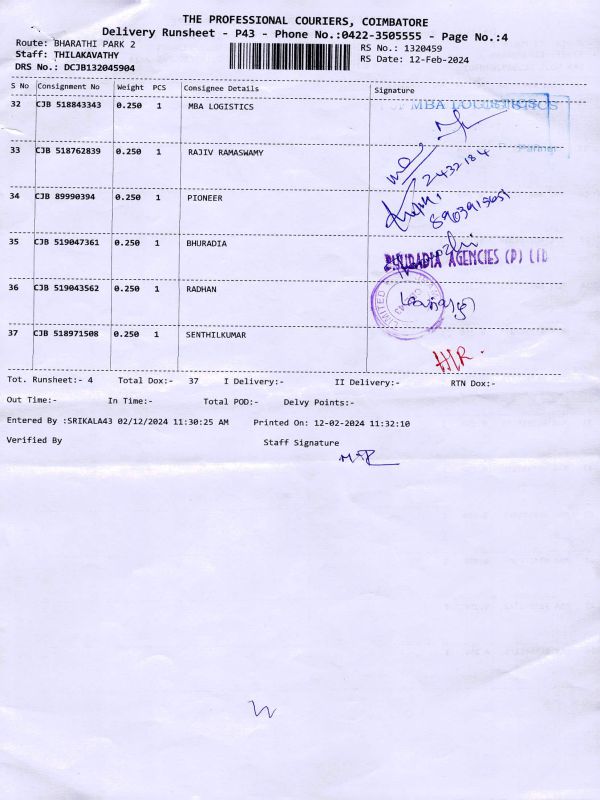 THE PROFESSIONAL COURIERS, COIMBATORE
Delivery Runsheet - P43 - Phone No.:0422-3505555 - Page No.:4
Route: BHARATHI PARK 2
Staff: THILAKAVATHY
DRS No.: DCJB132045904
RS No.: 1320459
RS Date: 12-Feb-2024
S No Consignment No Weight PCS Consignee Details Signature
32 CJB 518843343 0.250 1 MBA LOGISTICS
MBA LOGISTICS
33 CJB 518762839 0.250 1 RAJIV RAMASWAMY
2432184
34 CJB 89990394 0.250 1 PIONEER
35 CJB 519047361 0.250 1 BHURADIA
BHURADIA AGENCIES (P) LTD
36 CJB 519043562 0.250 1 RADHAN
37 CJB 518971508 0.250 1 SENTHILKUMAR
Tot. Runsheet:- 4 Total Dox:- 37 I Delivery:- II Delivery:- RTN Dox:-
Out Time:- In Time:- Total POD:- Delvy Points:-
Entered By :SRIKALA43 02/12/2024 11:30:25 AM Printed On: 12-02-2024 11:32:10
Verified By Staff Signature